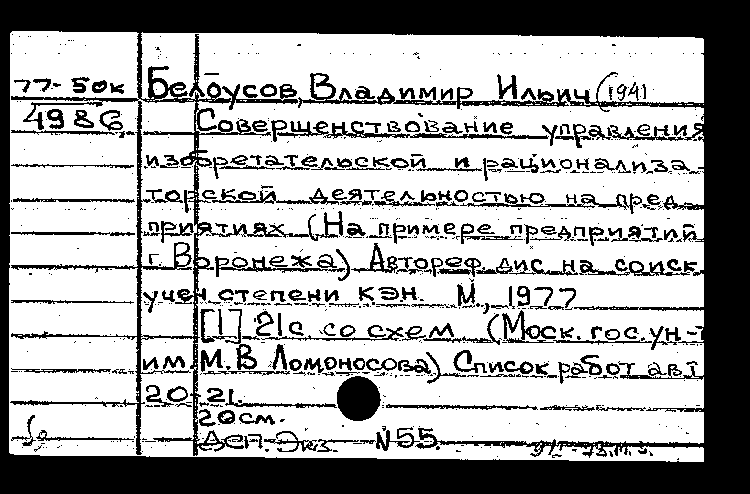 77-50к Белоусов, Владимир Ильич (1941
4986 Совершенствование управления
изобретательской и рационализа-
торской деятельностью на пред-
приятиях. (На примере предприятий
г. Воронежа). Автореф. дис. на соиск.
учен степени кэн. М., 1977
[1] 21с. со схем. (Моск. гос. ун-т
им. М.В Ломоносова) Список работ авт
20-21.
20см.
Деп. Экз. N 55.